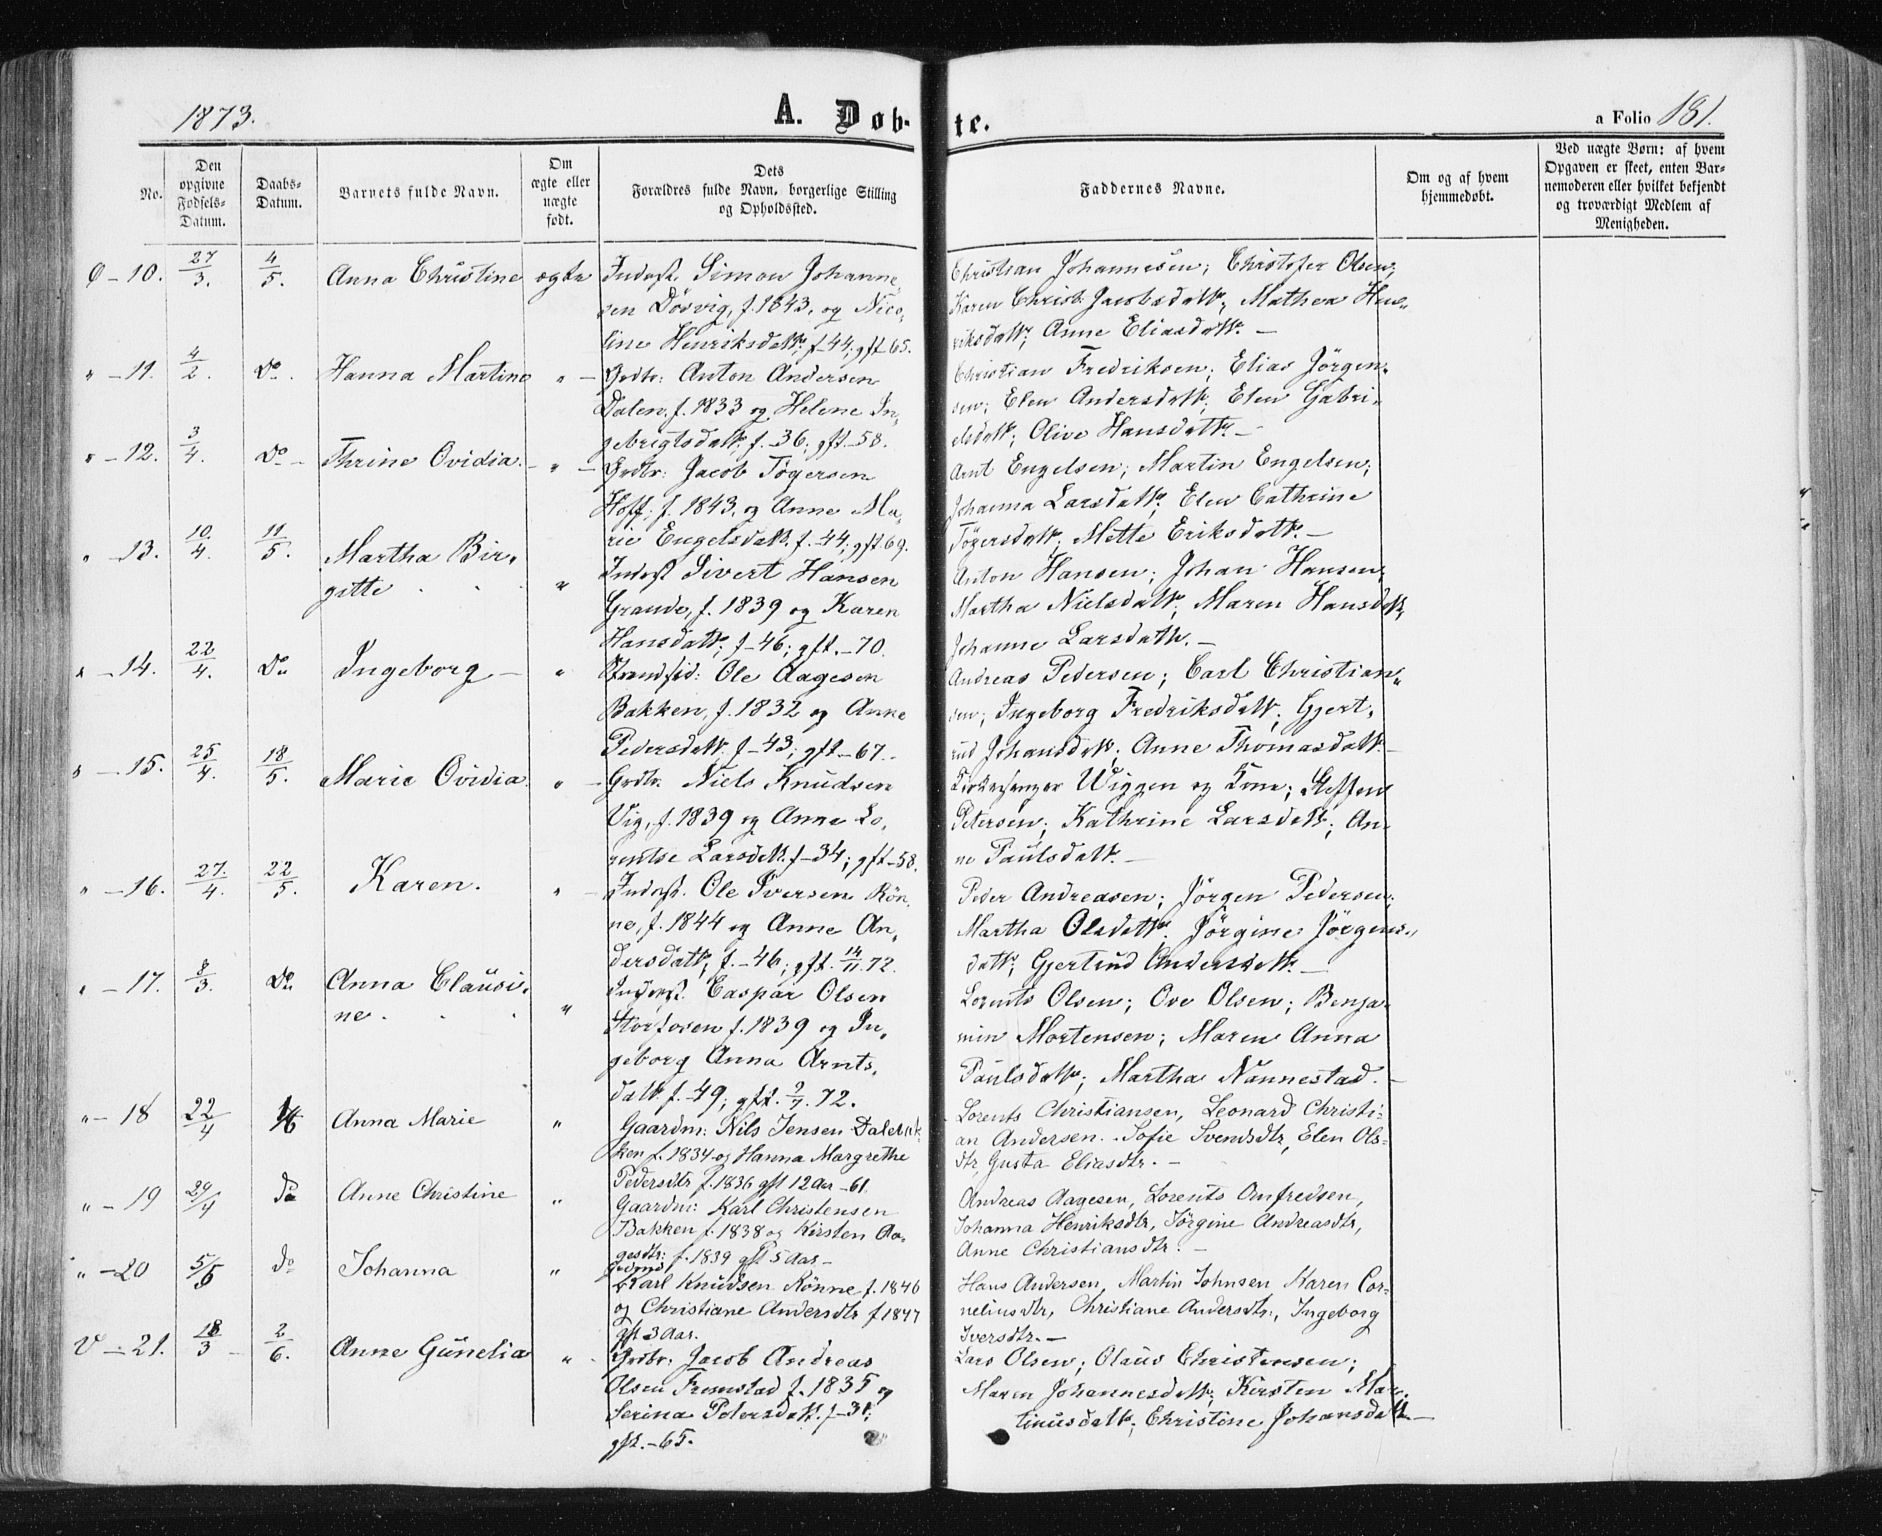 1873.
A. Døb-
te.
a Folio 181.
No.
Den
opgivne
Fødsels-
Datum.
Daabs-
Datum.
Barnets fulde Navn.
Om
ægte eller
uægte
født.
Dets
Forældres fulde Navn, borgerlige Stilling
og Opholdssted.
Faddernes Navne.
Om og af hvem
hjemmedøbt.
Ved uægte Børn: af hvem
Opgaven er skeet, enten Bar-
nemoderen eller hvilket bekjendt
og troværdigt Medlem af
Menigheden.
10. 27/3. 4/5. Anna Christine ægte
Inderst. Simon Johanne-
sen Dösvig, f. 1843, og Nico-
line Henriksdatt. f-44; gft-65.
Christian Johannesen; Christofer Olsen;
Karen Christ. Jacobsdatt.; Mathea Hen-
riksdatt; Anne Eliasdatt. —
" - 11. 4/2. Do. Hanna Martine " -
Grdbr: Anton Andersen
Dalen, f. 1833 og Helene In-
gebrigtsdatt. f. -36; gft. -58.
Christian Fredriksen; Elias Jörgen-
sen; Elen Andersdatt.; Elen Gabri-
elsdatt; Olive Hansdatt. —
" - 12. 3/4. Do - Thrine Ovidia. - " -
Grdbr: Jacob Tögersen
Hoff. f. 1843. og Anne Ma-
rie Engelsdatt. f. -44; gft. 69.
Arnt Engelsen; Martin Engelsen;
Johanna Larsdatt. Elen Cathrine
Tögersdatt; Mette Eriksdatt. —
" - 13. 10/4. 11/5. Martha Bir-
gitte "
Inderst Sivert Hansen
Grande, f. 1839 og Karen
Hansdatt; f-46; gft. -70.
Anton Hansen; Johan Hansen;
Martha Nielsdatt; Maren Hansdatt,
Johanne Larsdatt. —
" - 14. 22/4. Do Ingeborg — "
Strandsid: Ole Aagesen
Bakken, f. 1832 og Anne
Pedersdatt. f-43; gft-67.
Andreas Pedersen; Carl Christian-
sen; Ingeborg Fredriksdatt; Gjert-
rud Johansdatt; Anne Thomasdatt —
" - 15. 25/4. 18/5. Marie Ovidia. " -
Grdbr. Niels Knudsen
Vig, f. 1839 og Anne Lo-
rentse Larsdatt. f-34; gft-58.
Kirkesanger Wiggen og Kone; Steffen
Petersen; Kathrine Larsdatt; An-
ne Paulsdatt. —
" - 16. 27/4. 22/5. Karen. " -
Inderst. Ole Iversen Rön-
ne, f. 1844 og Anne An-
dersdatt; f. -46; gft. 14/11. 72.
Peder Andreasen; Jörgen Pedersen;
Martha Olsdatt. Jörgine Jörgens-
datt; Gjertrud Andersdatt. —
" - 17. 8/3. Do Anna Clausi-
ne "
Inderst. Caspar Olsen
f. 1839 og In-
geborg Anna Arnts-
datt f. -49; gft. 72.
Lorents Olsen; Ove Olsen; Benja-
min Mortensen; Maren Anna
Paulsdatt; Martha Nannestad. —
" - 18 22/4 1/6 Anna Marie "
Gaardm: Nils Jensen Dalebak-
ken f. 1834 og Hanna Margrethe
Pedersdtr f. 1836 gft 12 Aar -61.
Lorents Christiansen, Leonard Christi-
an Andersen. Sofie Svendsdtr, Elen Ols-
dtr, Gusta Eliasdtr. —
" - 19 29/4 Do Anne Christine "
Gaardm: Karl Christensen
Bakken f. 1838 og Kirsten Aa-
gesdtr: f. 1839 gft 5 Aar —
Andreas Aagesen, Lorents Anfredsen,
Johanna Henriksdtr, Jörgine Andreasdtr,
Anne Christiansdtr. —
" - 20 5/5 Do Johanna "
Karl Knudsen Rönne f. 1846
og Christiane Andersdtr f 1847
gft 3 Aar.
Hans Andersen, Martin Johnsen Karen Cor-
neliusdtr, Christiane Andersdtr., Ingeborg
Iversdtr. —
V - 21. 18/3 - 2/6. Anne Gunelia "
Grdbr: Jacob Andreas
Olsen Fremstad f. 1835 og
Serina Petersdatt. f-31;
gft. -65.
Lars Olsen; Olaus Christensen;
Maren Johannesdatt; Kirsten Mar-
tinusdatt; Christine Johansdatt. —